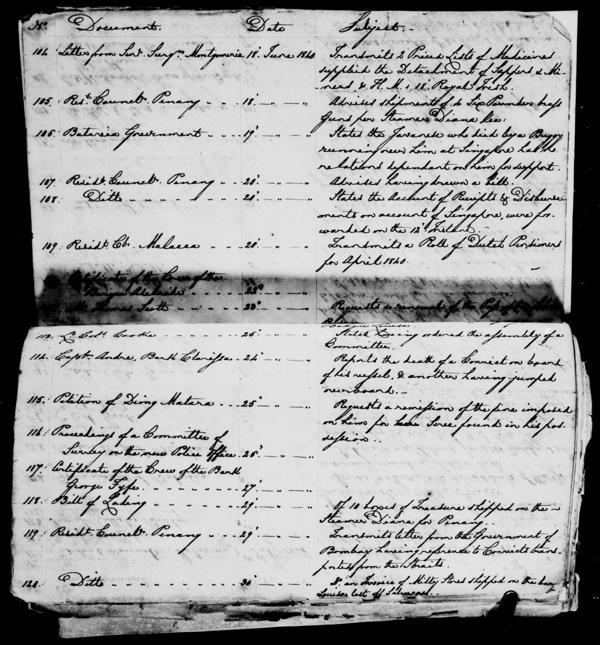 No. Document. Date Subject.
104. Letter from Sen.r Surg.n Montgomerie 18. June 1840 Transmits 2 Priced Lists of Medicines
supplied the Detachment of Sappers & Mi-
ners & H. M.s 18 Royal Irish.
105. Res.t Councr. Penang 18. Advises shipment of 4 Six Pounders brass
Guns per Steamer Diana
106. Batavia Government 19. States the Javanese who died by a Buggy
running over him at Singapore has no
relations dependent on him for support.
107. Resid.t Councr. Penang 20. Advises having drawn a bill.
108. Ditto 20. States the Account of Receipts & Disburse-
ments on account of Singapore, were for-
warded on the 12th Instant.
109. Resid.t Cr. Malacca 20. Transmits a Roll of Dutch Pensioners
for April 1840.
Certificate of the Crew of the
23.
Scott 23. Requests a renewal of the
113. Lt. Col. Cooke 26. States having ordered the assembly of a
Committee.
114. Capt. Andre, Bark Clarissa 24. Reports the death of a Convict on board
of his vessel, & another having jumped
overboard.
115. Petition of Matera 25. Requests a remission of the fine imposed
on him for found in his pos-
session.
116. Proceedings of a Committee of
Survey on the new Police Office 26.
117. Certificate of the Crew of the Bark
George 27.
118. Bill of Lading 29. Of 10 boxes of Treasure shipped on the
Steamer Diana for Penang.
119. Resid.t Councr. Penang 29. Transmits letter from the Government of
Bombay having reference to Convicts trans-
ported from the Straits.
120. Ditto 30. & an Invoice of Stores shipped on the
Louisa lost off